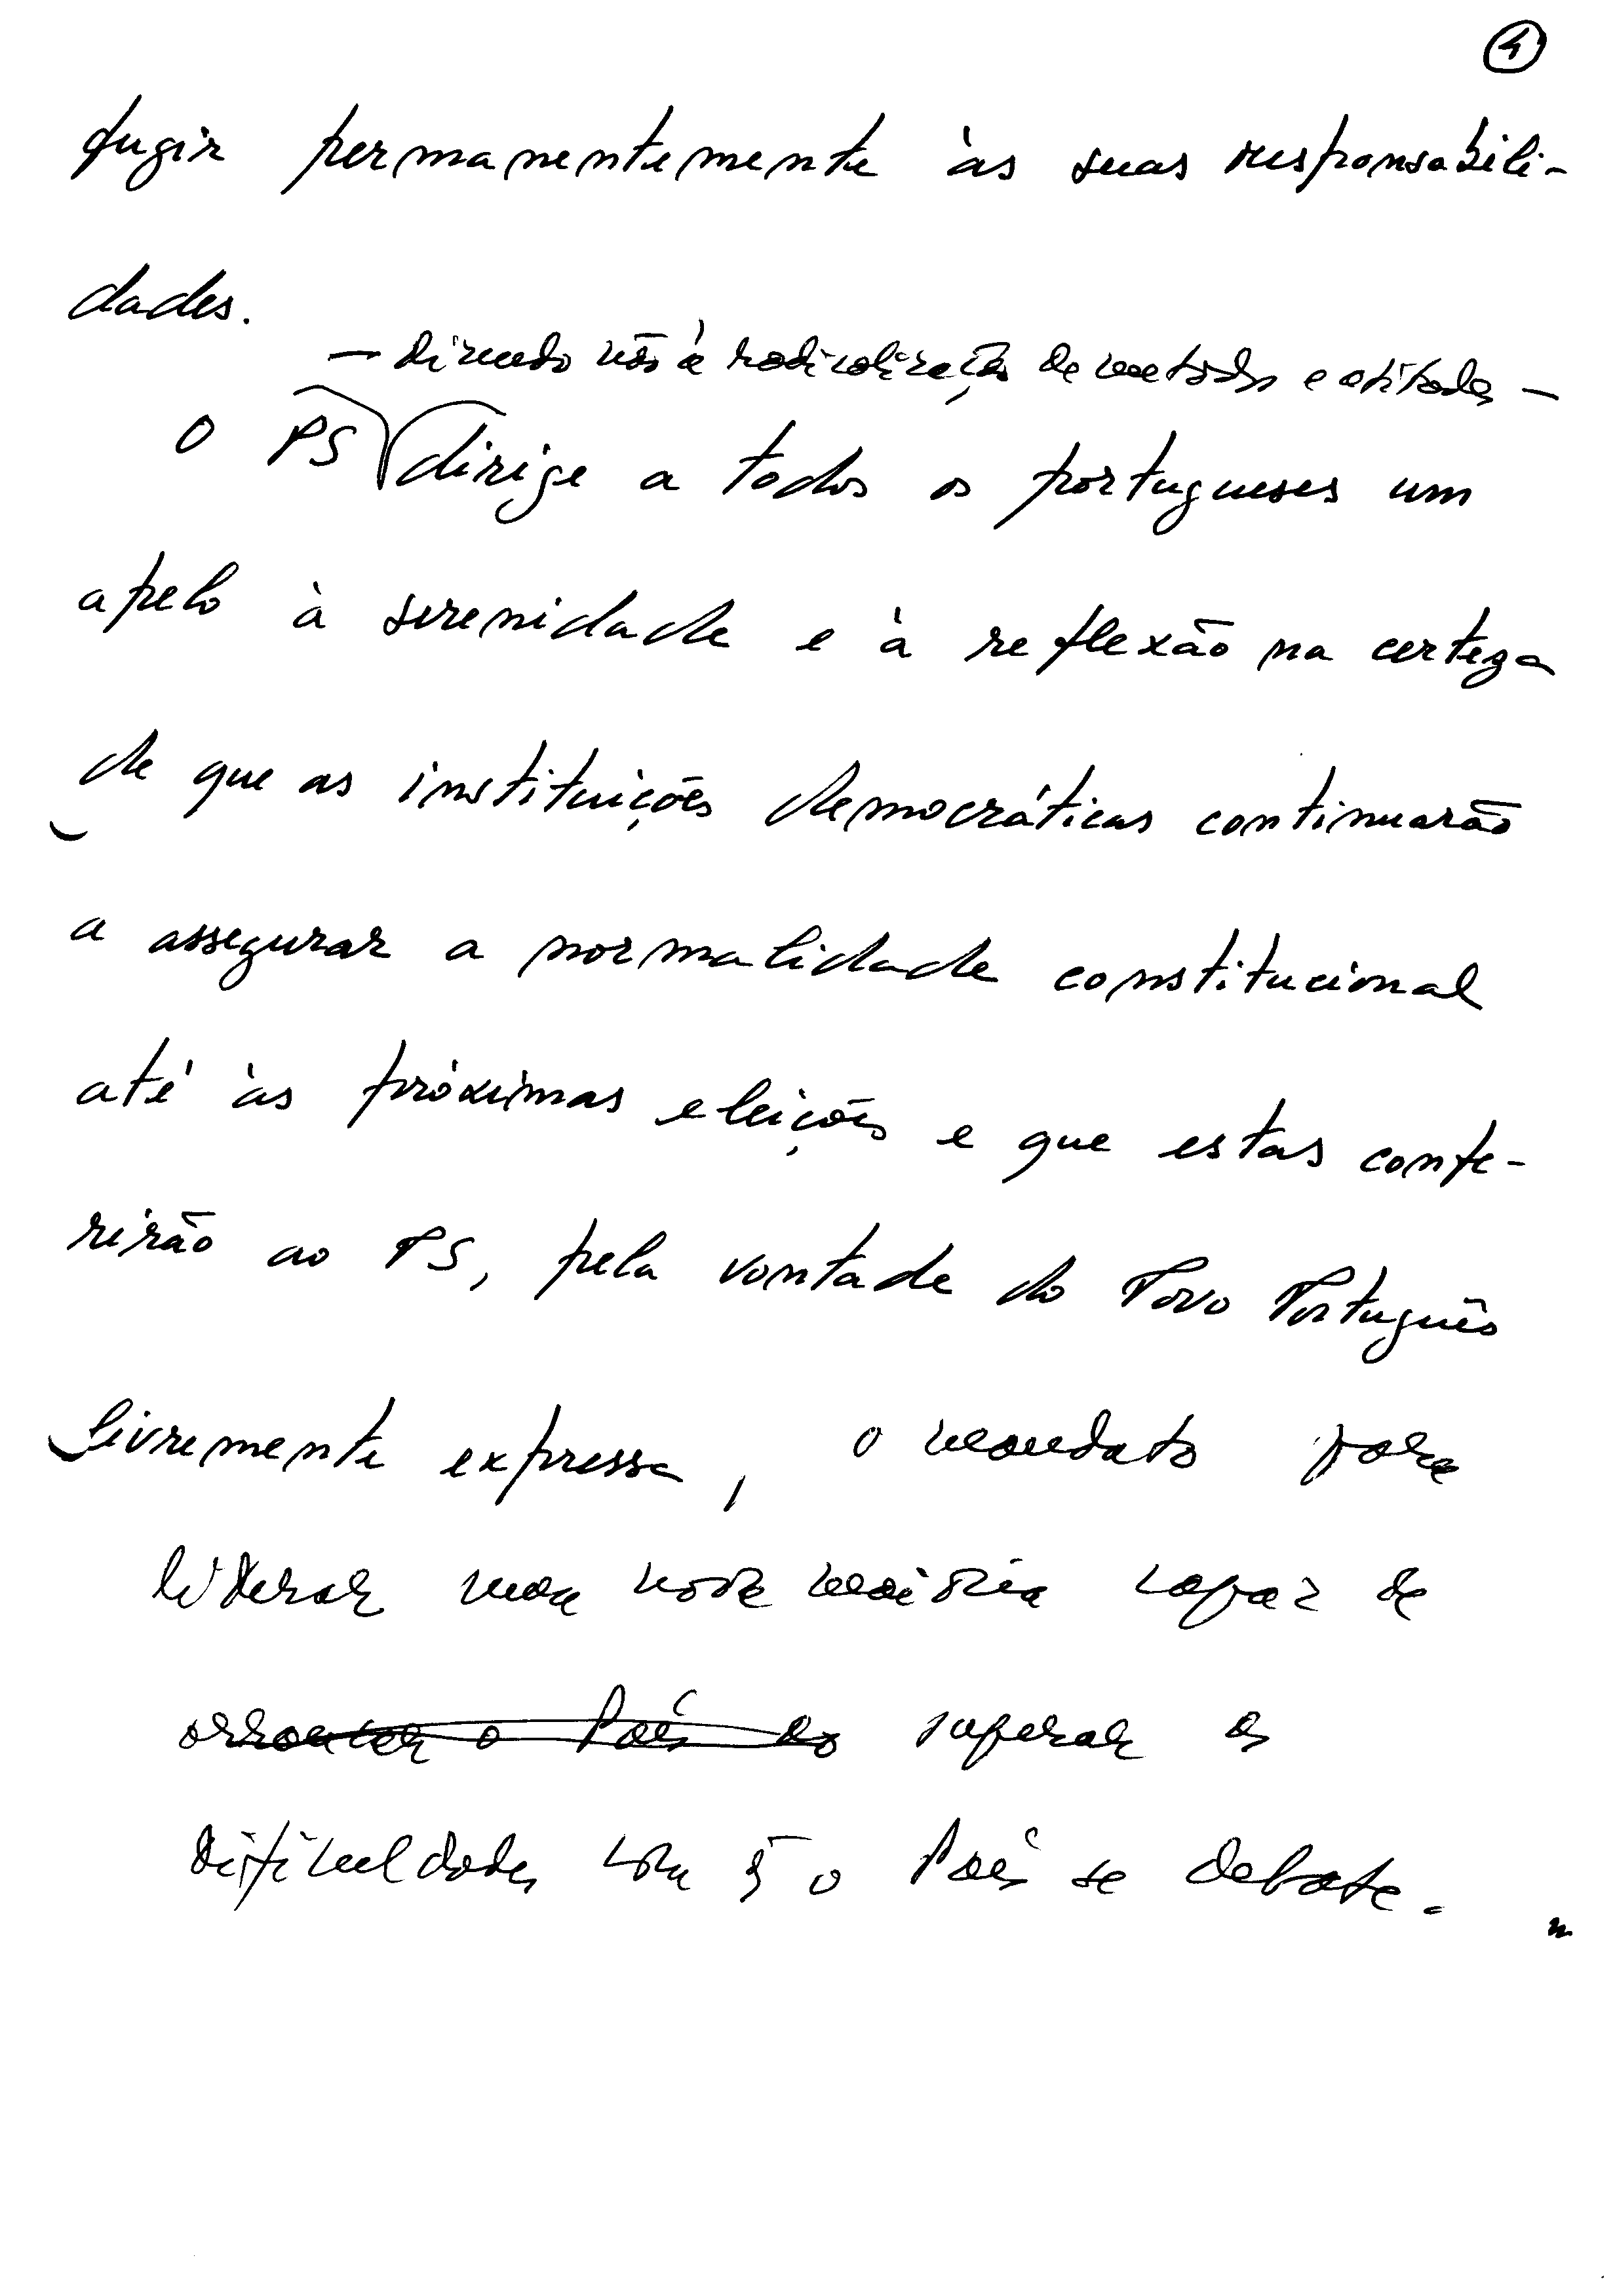 4
fugir permanentemente às suas responsabili-
dades.
— dizendo não à radicalização de metodos e atitudes —
O PS dirige a todos os portugueses um
apelo à serenidade e à reflexão na certeza
de que as instituições democráticas continuarão
a assegurar a normalidade constitucional
até às próximas eleições e que estas confe-
rirão ao PS, pela vontade do Povo Português
livremente expressa, o mandato para
liderar uma nova maioria capaz de
arrancar o País as superar as
dificuldades com q̃ o País se debate.